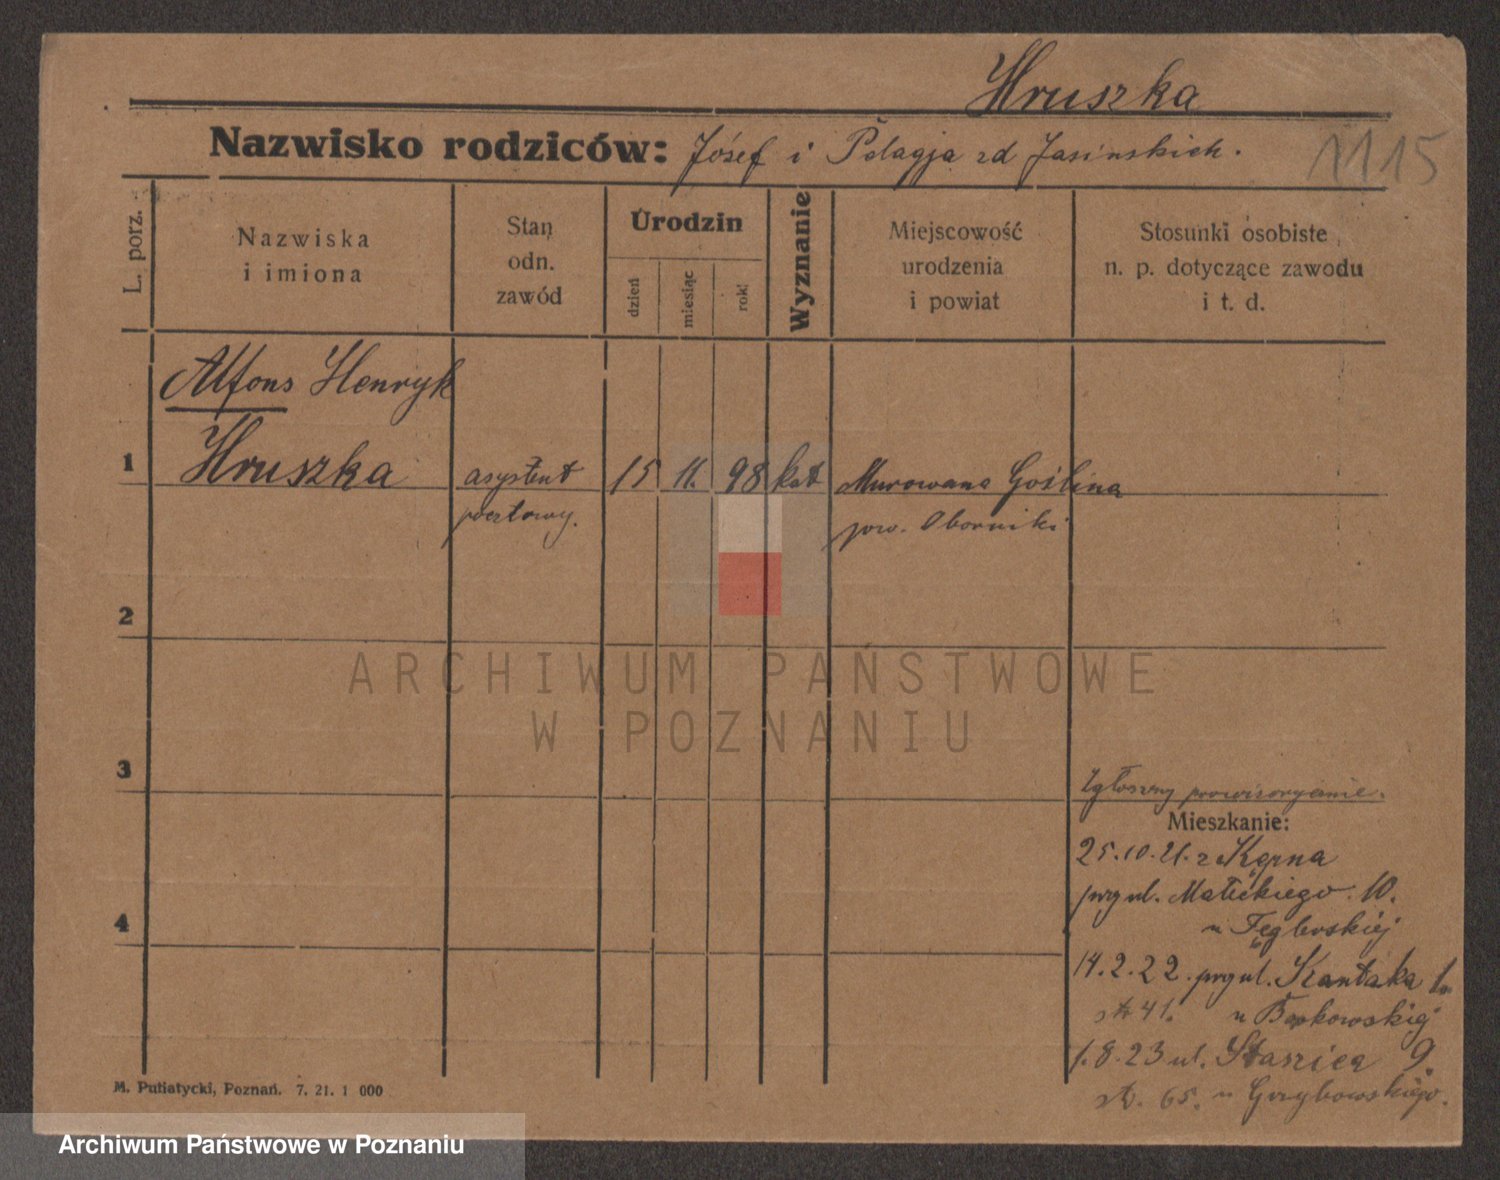 Hruszka
Nazwisko rodziców: Józef i Pelagja zd Jasinskich.
1115
L. porz.
Nazwiska
i imiona
Stan
odn.
zawód
Urodzin
dzień
miesiąc
rok
Wyznanie
Miejscowość
urodzenia
i powiat
Stosunki osobiste
n. p. dotyczące zawodu
i t. d.
Alfons Henryk
1 Hruszka asystent 15 11. 98 kat Murowana Goślina
pocztowy. pow. Oborniki
2
ARCHIWUM PAŃSTWOWE
W POZNANIU
3
Zgłoszony prowizorycznie.
Mieszkanie:
25.10.21. z Kępna
przy ul. Małeckiego 10.
4
u
14.2.22. przy ul. Kantaka
str 41. u
1.8.23 ul. Staszica 9.
str. 65. u Grzybowskiego.
M. Putiatycki, Poznań. 7. 21. 1 000
Archiwum Państwowe w Poznaniu